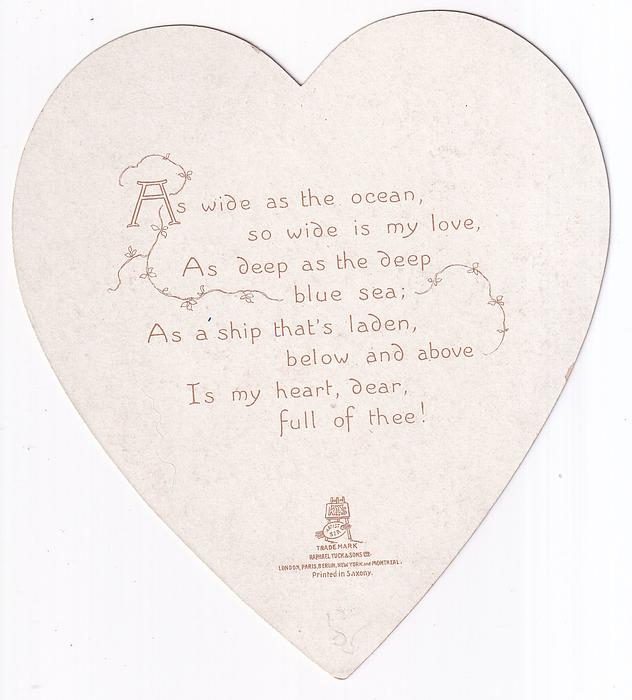 As wide as the ocean,
so wide is my love,
As deep as the deep
blue sea;
As a ship that's laden,
below and above
Is my heart, dear,
full of thee!
TRADE MARK
RAPHAEL TUCK & SONS LTD.
LONDON, PARIS, BERLIN, NEW YORK and MONTREAL.
Printed in Saxony.